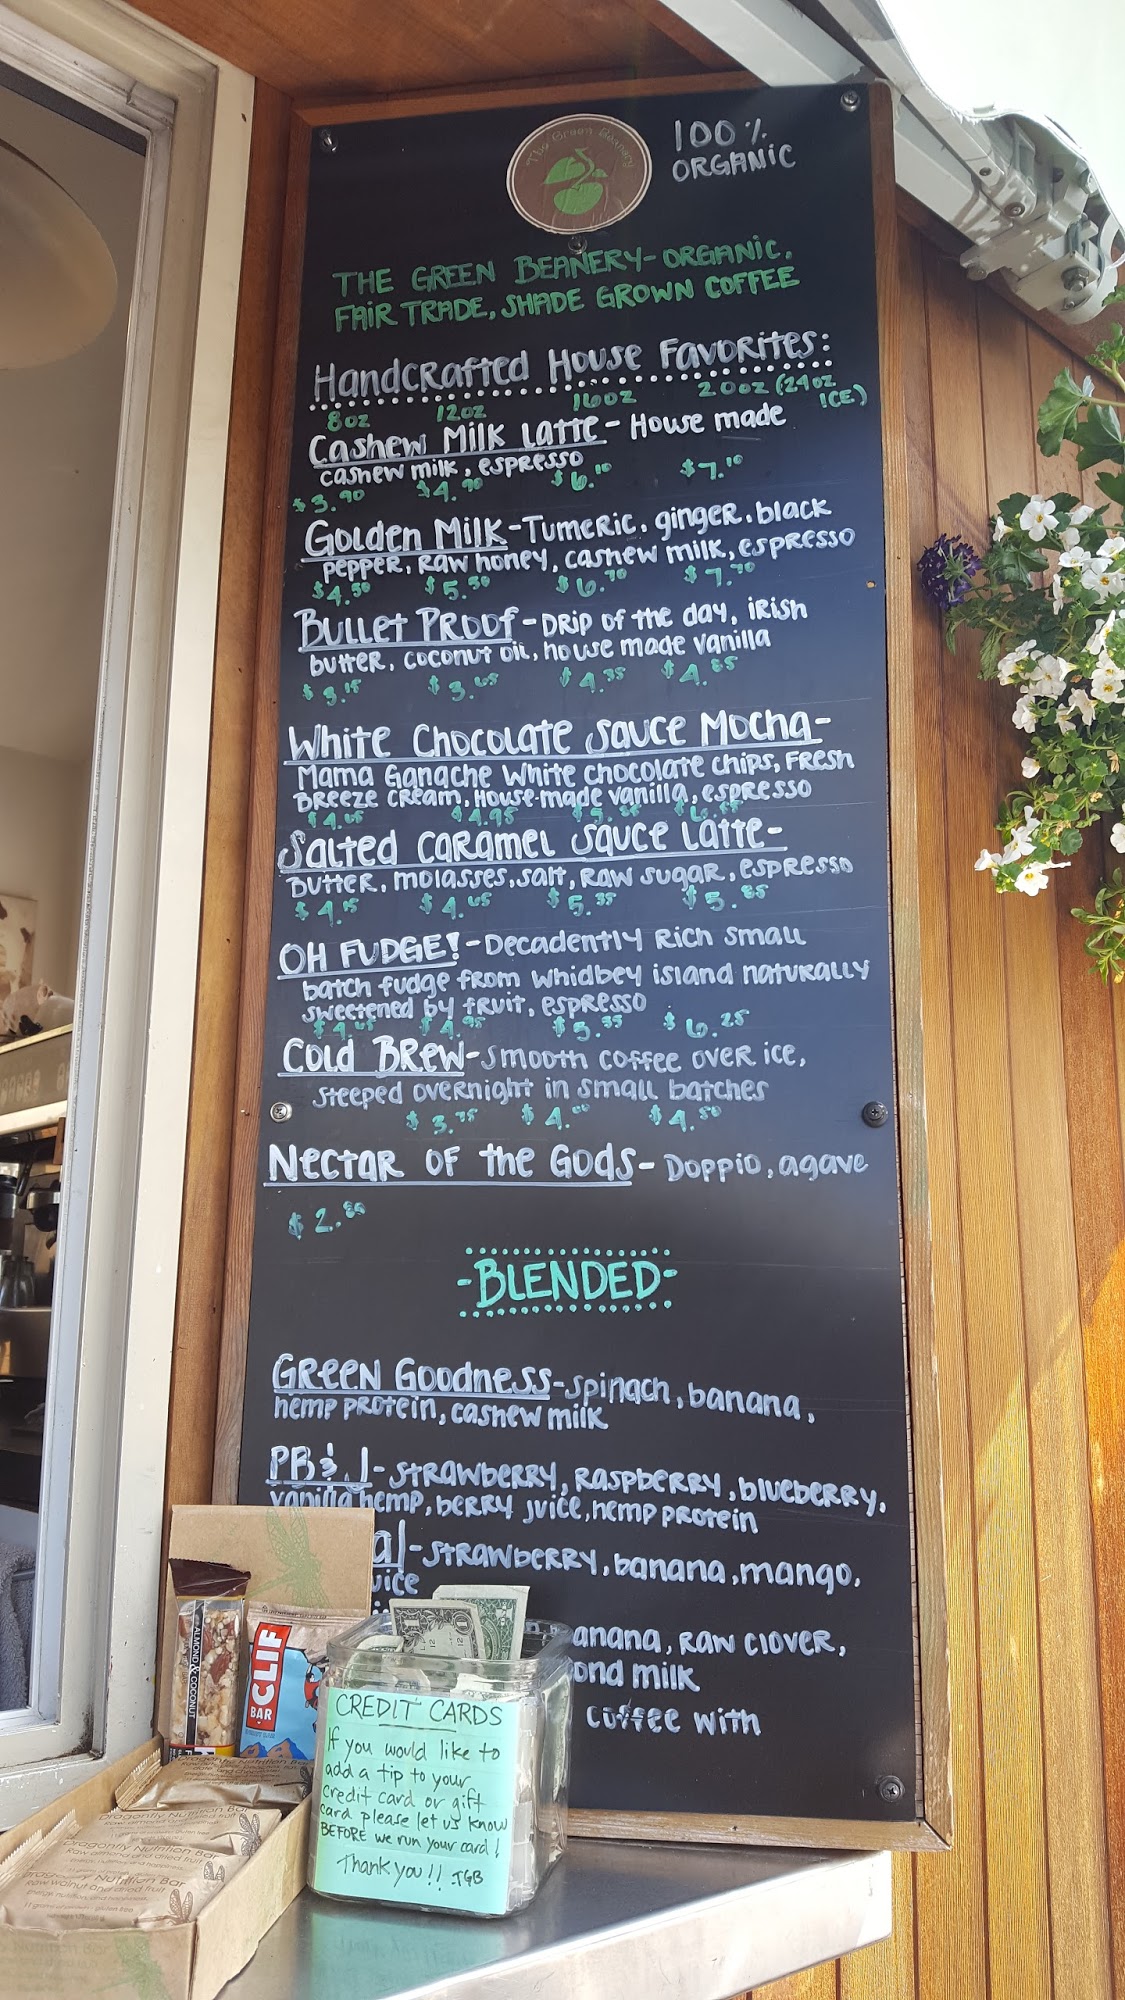 The Green Beanery
100%
ORGANIC
THE GREEN BEANERY-ORGANIC,
FAIR TRADE, SHADE GROWN COFFEE
Handcrafted House Favorites:
8oz 12oz 16oz 20oz (24oz ICE)
Cashew Milk Latte - House made
cashew milk, espresso
$3.90 $4.90 $6.10 $7.10
Golden Milk - Tumeric, ginger, black
pepper, raw honey, cashew milk, espresso
$4.50 $5.50 $6.70 $7.70
Bullet Proof - Drip of the day, irish
butter, coconut oil, house made vanilla
$3.15 $3.65 $4.35 $4.85
White Chocolate Sauce Mocha -
Mama Ganache White chocolate chips, Fresh
Breeze cream, House-made vanilla, espresso
$4.95
Salted Caramel Sauce Latte -
Butter, molasses, salt, raw sugar, espresso
$4.15 $4.65 $5.35 $5.85
OH FUDGE! - Decadently rich small
batch fudge from Whidbey island naturally
sweetened by fruit, espresso
$4.95 $6.25
Cold Brew - Smooth coffee over ice,
steeped overnight in small batches
$3.75 $4.00 $4.50
Nectar of the Gods - Doppio, agave
$2.80
-BLENDED-
Green Goodness - spinach, banana,
hemp protein, cashew milk
PB & J - strawberry, raspberry, blueberry,
vanilla hemp, berry juice, hemp protein
al - strawberry, banana, mango,
uice
anana, raw clover,
ond milk
coffee with
ALMOND & COCONUT
CLIF
BAR
CREDIT CARDS
If you would like to
add a tip to your
credit card or gift
card please let us know
BEFORE we run your card!
Thank you!! TGB
Dragonfly Nutrition Bar
Dragonfly Nutrition Bar
Raw almond and dried fruit
Dragonfly Nutrition Bar
Raw walnut and dried fruit